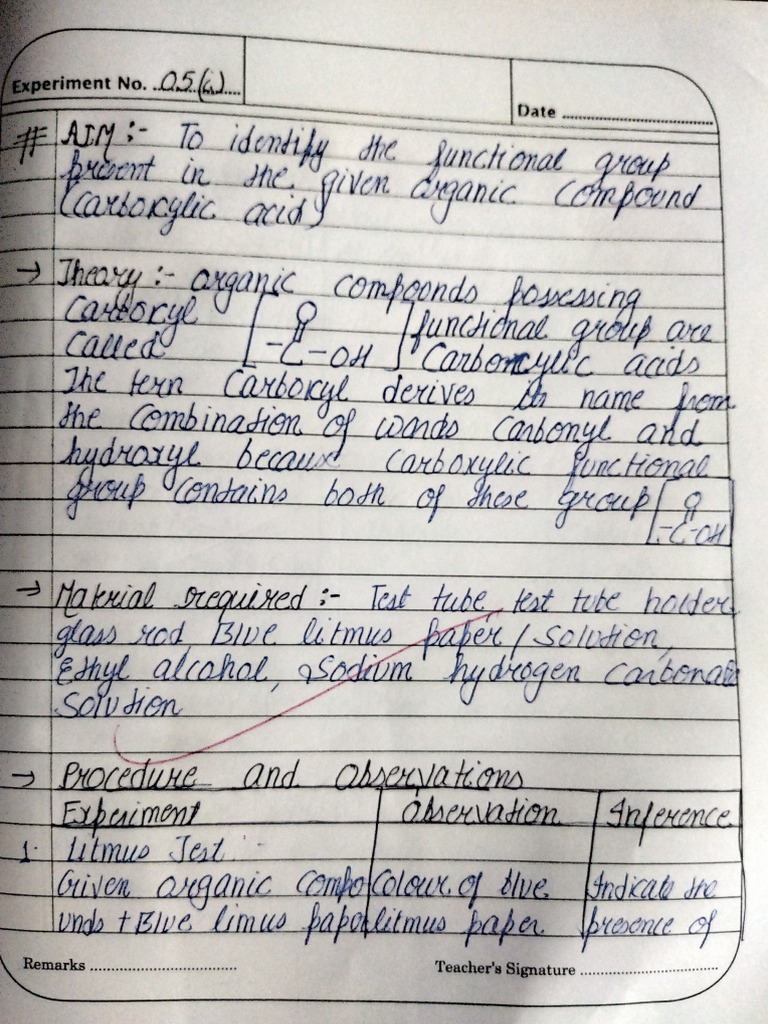 Experiment No. 05(i)
Date
# AIM :- To identify the functional group
present in the given organic compound
(carboxylic acid)
→ Theory :- organic compounds possessing
Carboxyl [ O functional group are
called -C-OH ] Carboxylic acids
The term Carboxyl derives its name from
the combination of words Carbonyl and
hydroxyl because carboxylic functional
group contains both of these group [ O
-C-OH
→ Material required :- Test tube, test tube holder
glass rod, Blue litmus paper / solution,
Ethyl alcohol, Sodium hydrogen carbonate
Solution
→ Procedure and observations
Experiment Observation Inference
1. Litmus Test
Given organic compo Colour of blue Indicate the
unds + Blue limus paper litmus paper presence of
Remarks Teacher's Signature